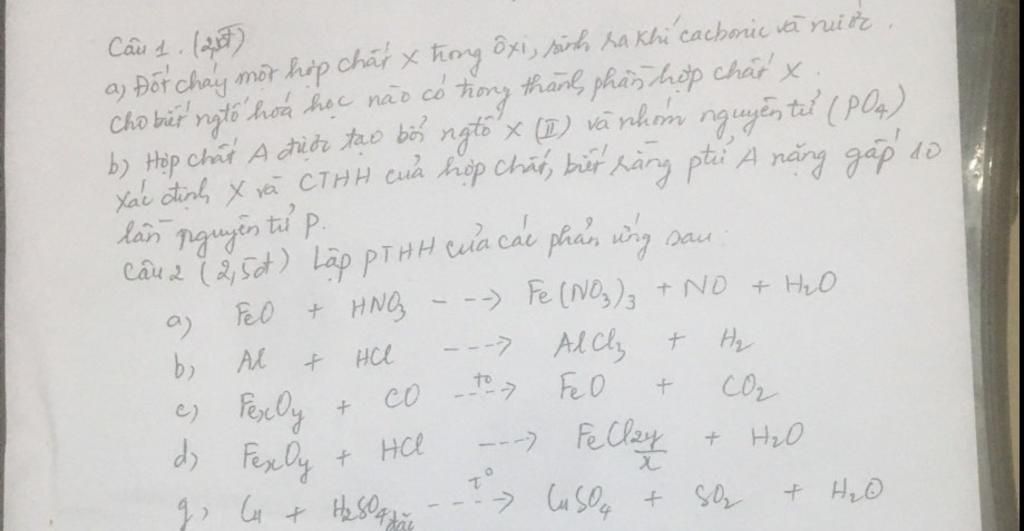 Câu 1. (2,5đ)
a) Đốt cháy một hợp chất X trong ôxi, sinh ra khí cacbonic và nước.
Cho biết ngtố hoá học nào có trong thành phần hợp chất X.
b) Hợp chất A được tạo bởi ngtố X (II) và nhóm nguyên tử (PO4)
Xác định X và CTHH của hợp chất, biết rằng ptử A nặng gấp 10
lần nguyên tử P.
Câu 2 (2,5đ) Lập PTHH của các phản ứng sau:
a) FeO + HNO3 ---> Fe(NO3)3 + NO + H2O
b) Al + HCl ---> AlCl3 + H2
c) FexOy + CO --t°--> FeO + CO2
d) FexOy + HCl ---> FeCl2y/x + H2O
g) Cu + H2SO4 đặc --t°--> CuSO4 + SO2 + H2O